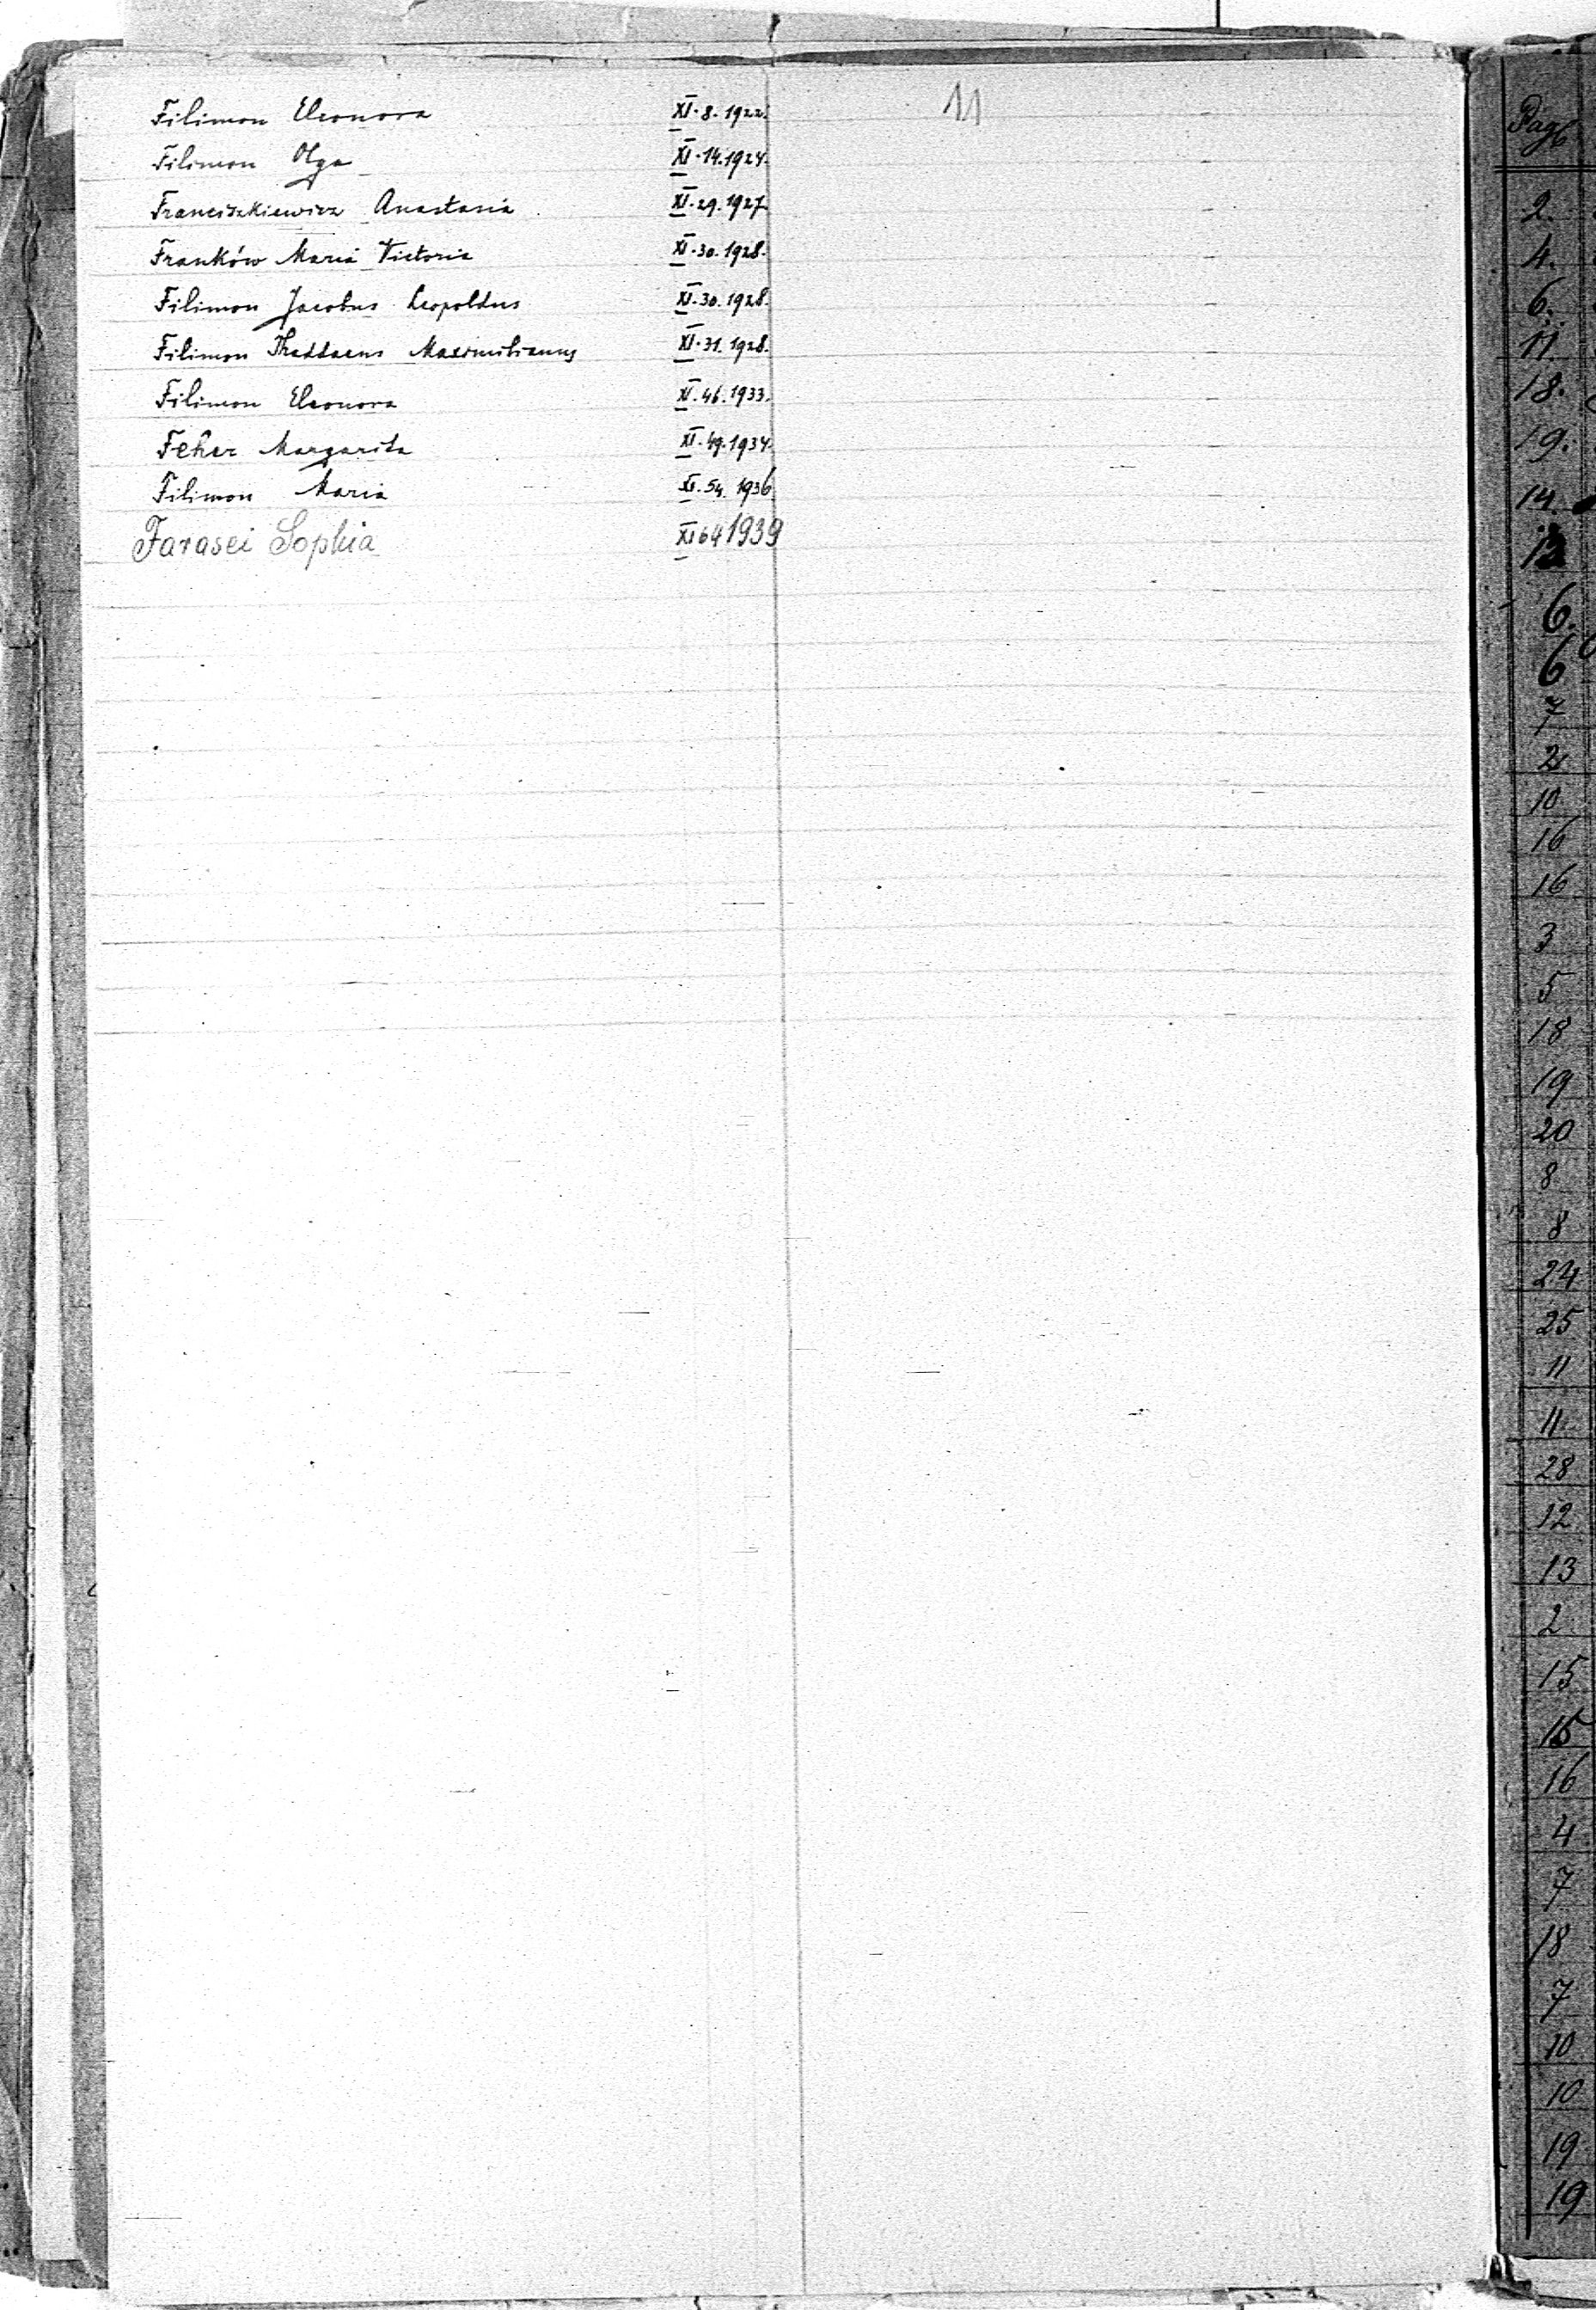 11
Filimon Eleonora XI.8.1922.
Filimon Olga XI.14.1924.
Franciszkiewicz Anastasia XI.29.1927.
Franków Maria Victoria XI.30.1928.
Filimon Jacobus Leopoldus XI.30.1928.
Filimon Thaddaeus Maximilianus XI.31.1928.
Filimon Eleonora XI.46.1933.
Feher Margarita XI.49.1934.
Filimon Maria XI.54.1936.
Farasei Sophia XI 64 1939
Pag
2.
4.
6.
11.
18.
19.
14.
6.
6
7
2
10
16
16
3
5
18
19
20
8
8
24
25
11
11
28
12
13
2
15
15
16
4
7
18
7
10
10
19
19